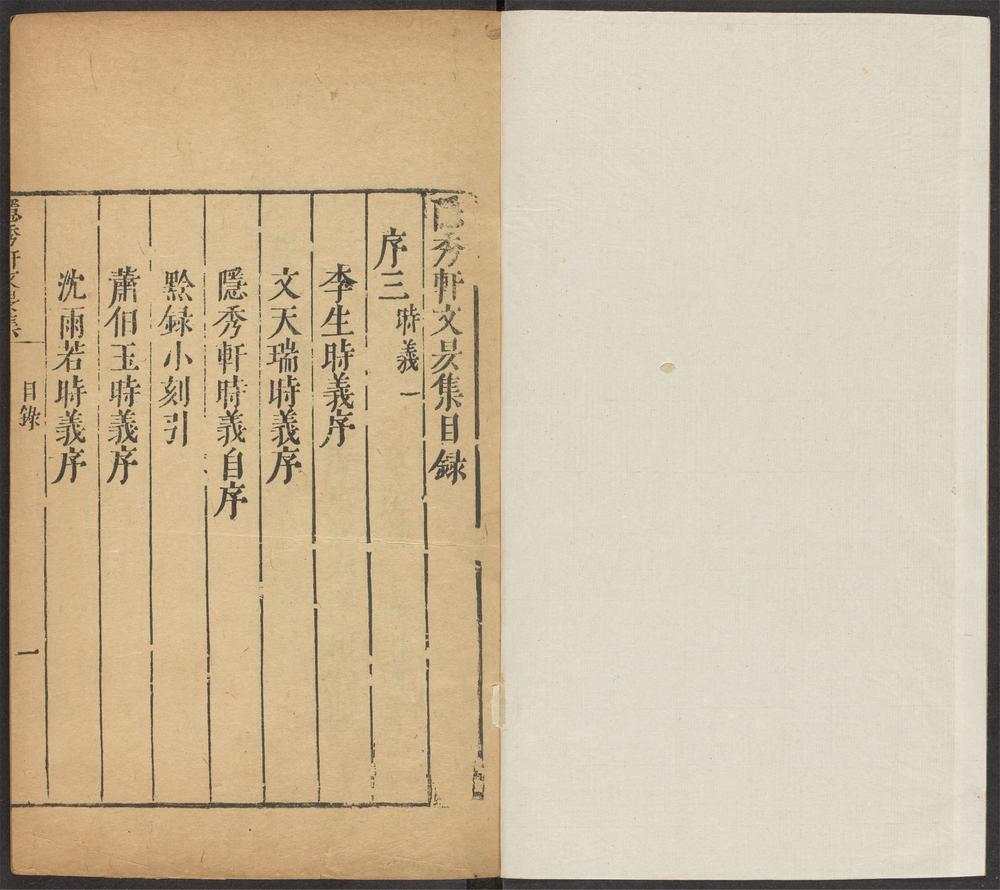 隱秀軒文昃集目録
序三 時義一
李生時義序
文天瑞時義序
隱秀軒時義自序
黔録小刻引
蕭伯玉時義序
沈雨若時義序
隱秀軒文昃集 目錄 一